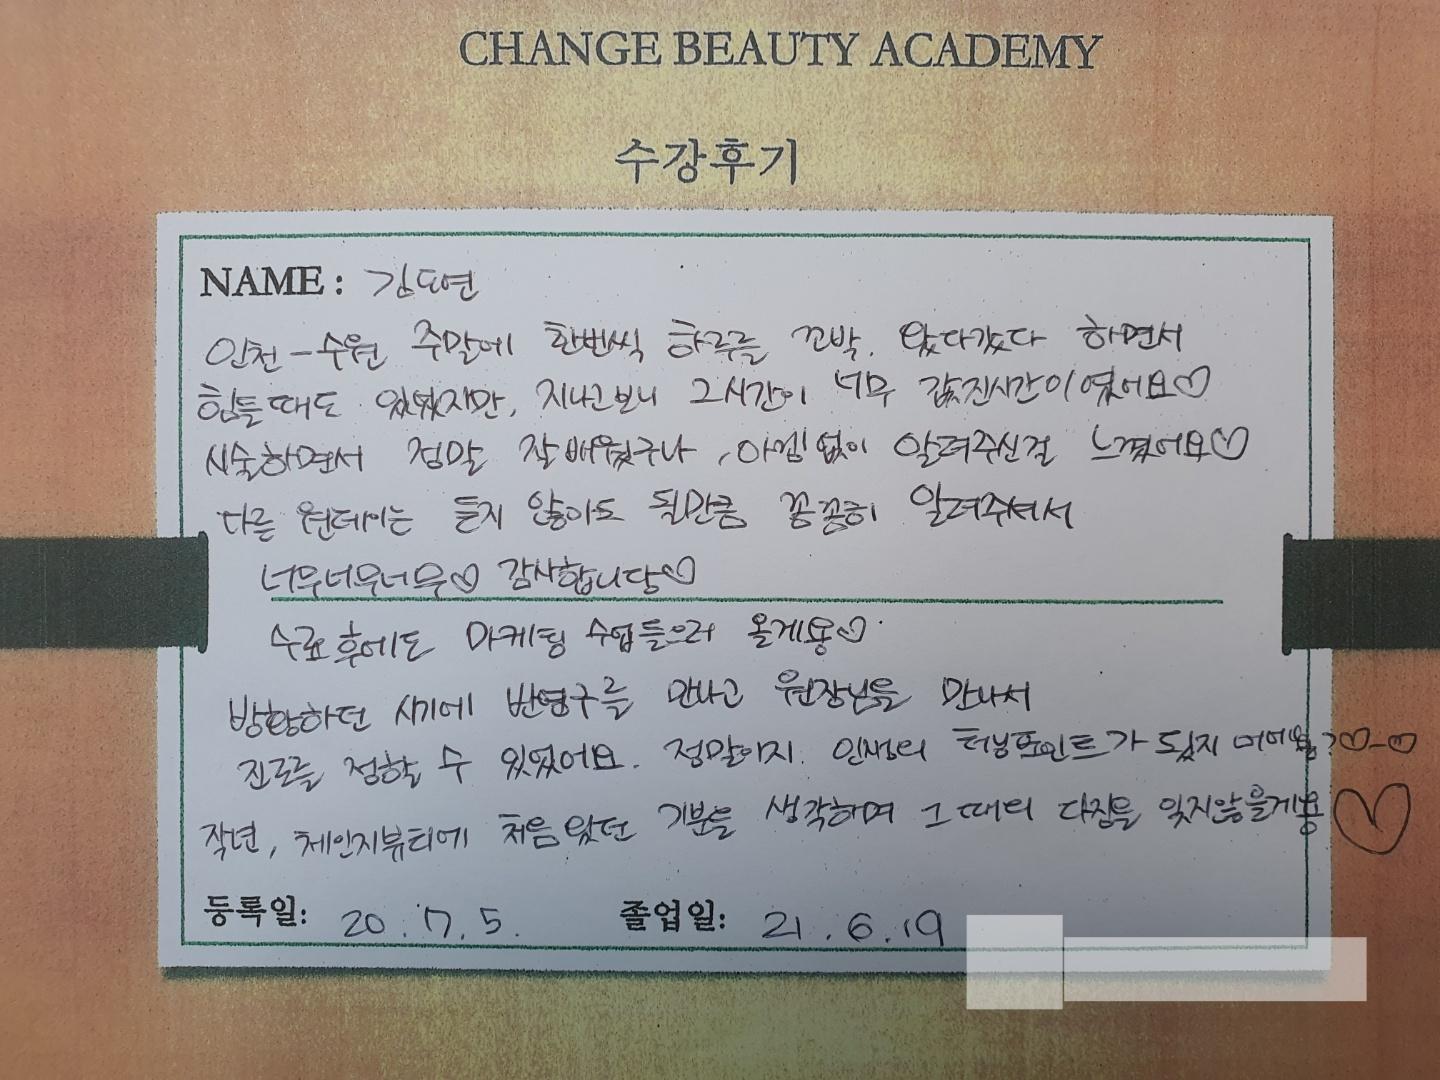 CHANGE BEAUTY ACADEMY
수강후기
NAME : 김도연
인천-수원 주말에 한번씩 하루를 꼬박. 왔다갔다 하면서
힘들때도 있었지만, 지나고보니 그시간이 너무 값진시간이였어요♡
시술하면서 정말 잘배웠구나, 아낌없이 알려주신걸 느꼈어요♡
다른 원데이는 듣지 않아도 될만큼 꼼꼼히 알려주셔서
너무너무너무♡ 감사합니당♡
수료후에도 마케팅 수업들으러 올게용♡
방황하던 시기에 반영구를 만나고 원장님을 만나서
진로를 정할 수 있었어요. 정말이지. 인생의 터닝포인트가 됐지 ?♡-♡
작년, 체인지뷰티에 처음왔던 기분을 생각하며 그때의 다짐을 잊지않을게용♡
등록일: 20.7.5. 졸업일: 21.6.19